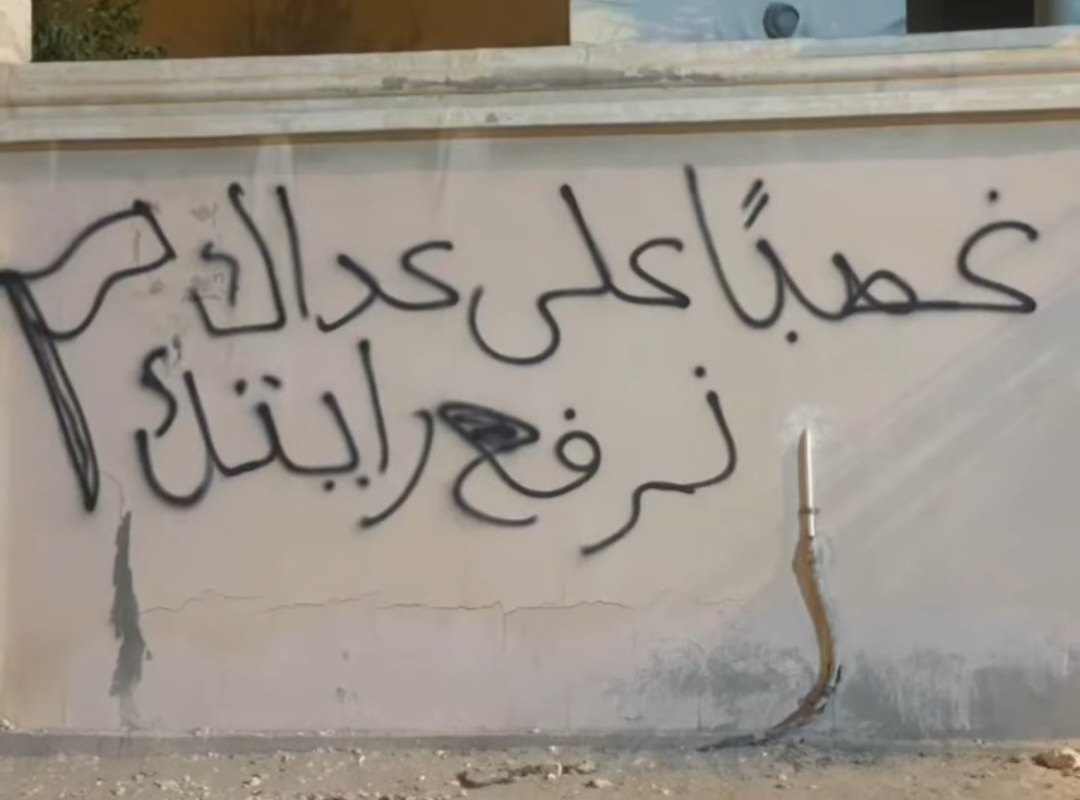 غصبًا على عداك
نرفع رايتك